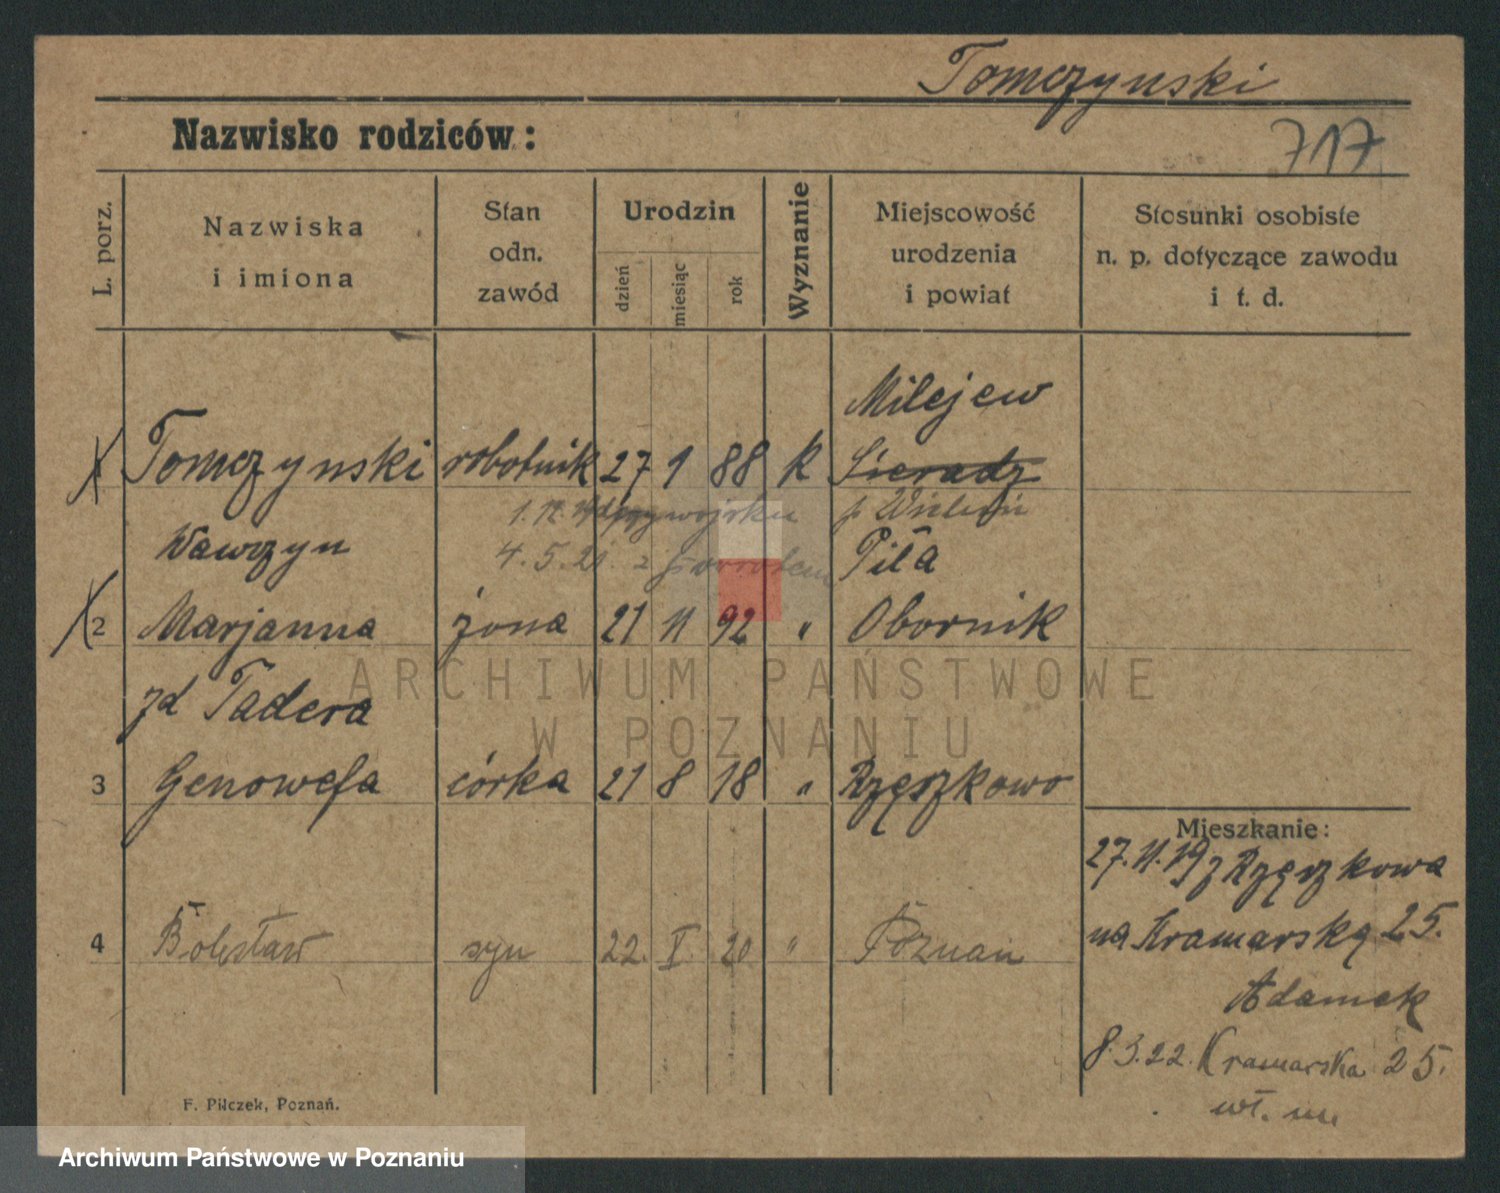 Tomczynski
Nazwisko rodziców:
717
L. porz.
Nazwiska
i imiona
Stan
odn.
zawód
Urodzin
dzień
miesiąc
rok
Wyznanie
Miejscowość
urodzenia
i powiat
Stosunki osobiste
n. p. dotyczące zawodu
i t. d.
Milejew
Tomczynski robotnik 27 1 88 k Sieradz
1. 12. przy wojsku p Wieluń
Wawrzyn 4. 5. 21. z powrotem Piła
2 Marjanna żona 21 11 92 " Obornik
zd Tadera
3 Genowefa córka 21 8 18 " Rzęszkowo
4 Bolesław syn 22. V 20 " Poznań
Mieszkanie:
27. 11. 19 z Rzęszkowa
na Kramarską 25.
Adamek
8. 3. 22. Kramarska 25.
wł. m.
F. Pilczek, Poznań.
ARCHIWUM PAŃSTWOWE
W POZNANIU
Archiwum Państwowe w Poznaniu